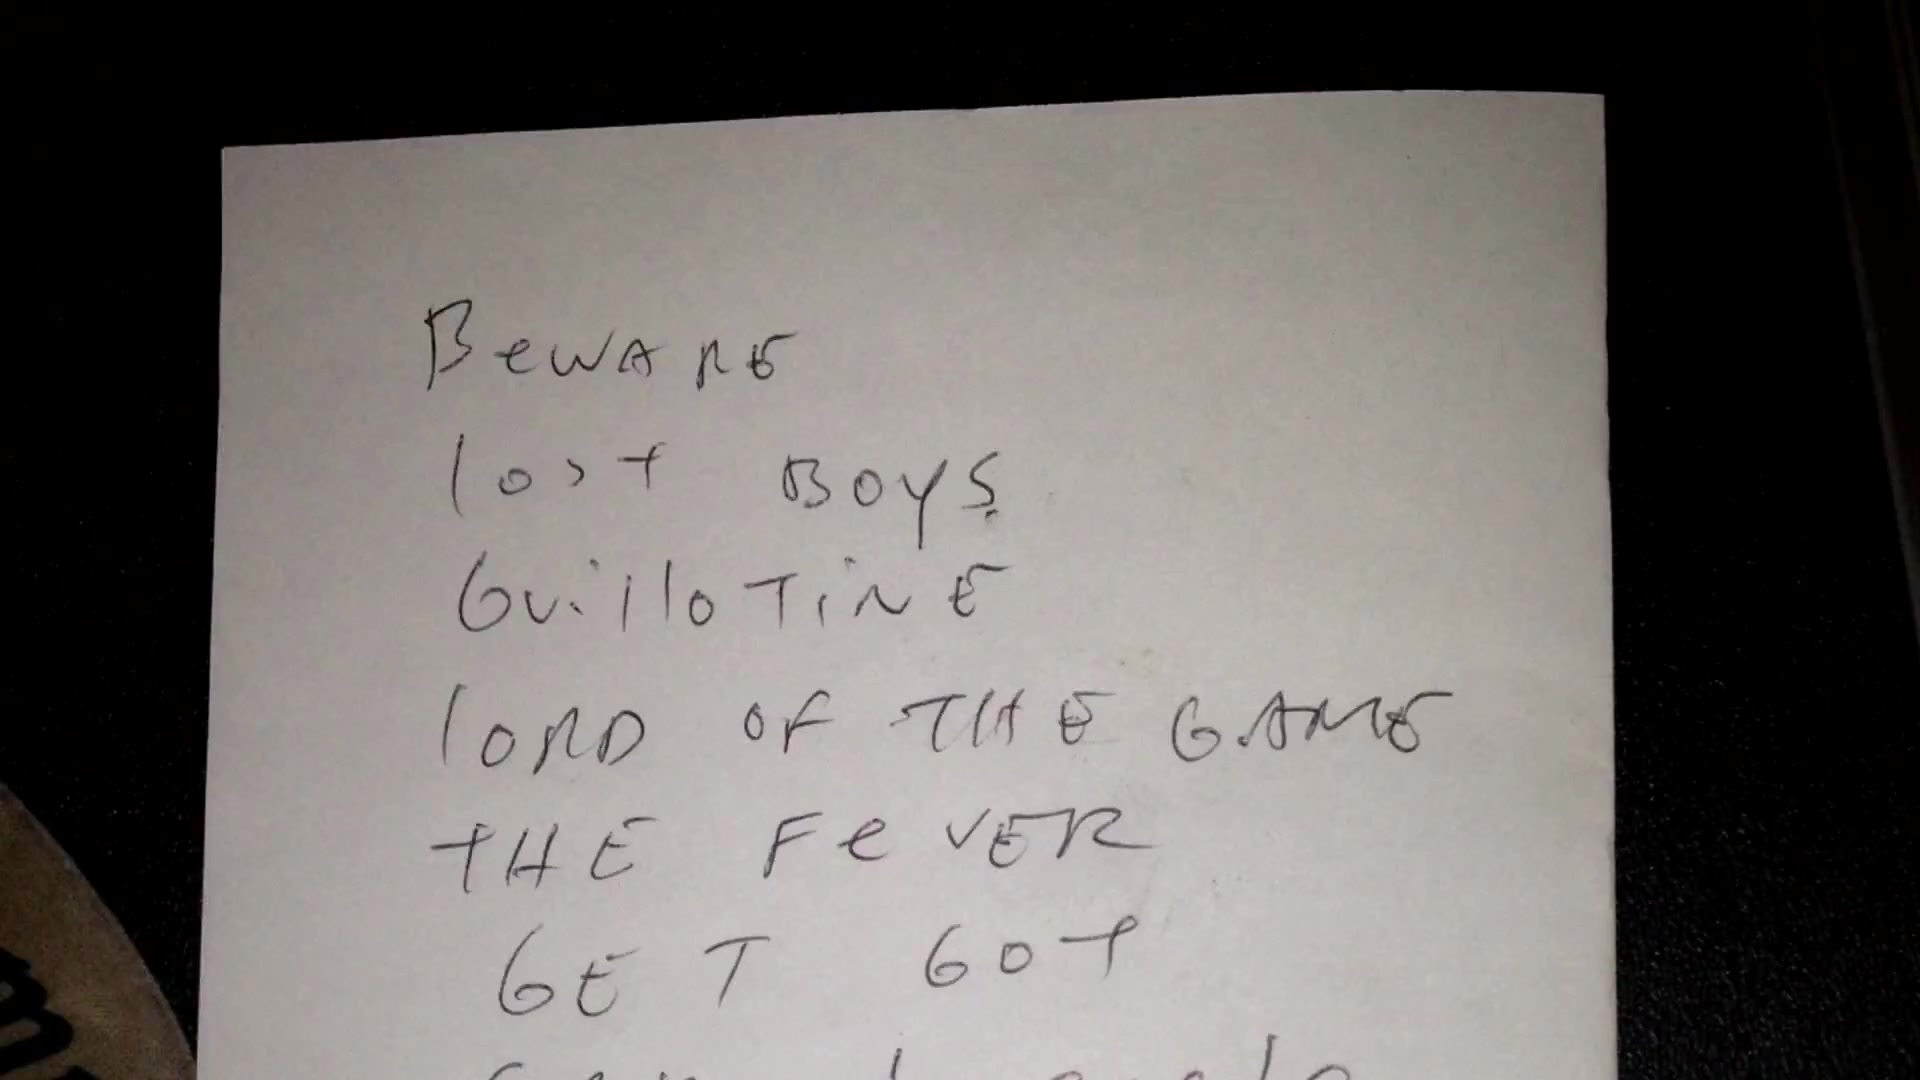 BeWARE
lost BOYS
GuilloTiNE
lORD OF THE GAME
THE FeVER
GET GOT